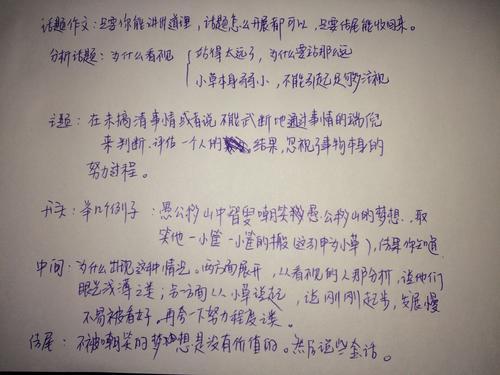 话题作文：只要你能讲出道理，话题怎么开展都可以，只要结尾能收回来。
分析话题：为什么看视 站得太远了，为什么要站那么远
小草本身弱小，不能引起足够注视
主题：在未搞清事情或者说不能武断地通过事情的端倪
来判断.评估一个人的 结果，忽视了事物本身的
努力过程。
开头：举几个例子：愚公移山中智叟嘲笑愚公移山的梦想.取
笑他一小筐一小筐的搬（这引申为小草），结果你知道
中间：为什么出现这种情况。两方面展开，从看视的人那分析，说他们
眼光浅薄之类；另一方面从小草说起，说刚刚起步，发展慢
不易被看好。再夸一下努力程度之类。
结尾：不被嘲笑的梦想是没有价值的。然后说些套话。